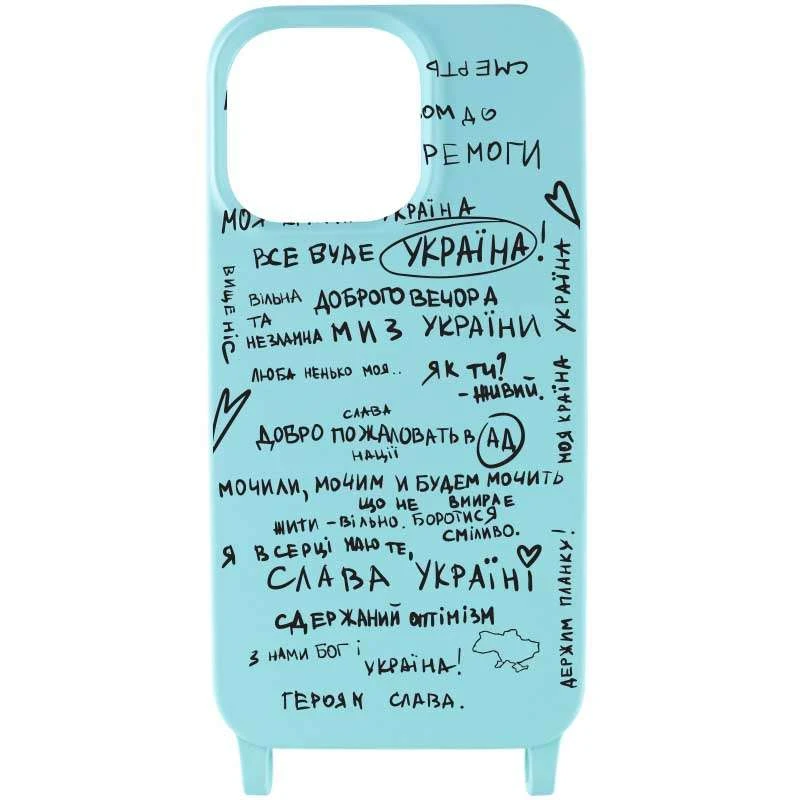 СМЕРТЬ
ОМ ДО
РЕМОГИ
МОЯ КРАЇНА УКРАЇНА
ВСЕ БУДЕ УКРАЇНА!
ВИЩЕ НІС
ВІЛЬНА
ТА
НЕЗЛАМНА
ДОБРОГО ВЕЧОРА
МИ З УКРАЇНИ
ЛЮБА НЕНЬКО МОЯ..
ЯК ТИ?
- ЖИВИЙ.
МОЯ КРАЇНА УКРАЇНА
СЛАВА
ДОБРО ПОЖАЛОВАТЬ В АД
НАЦІЇ
МОЧИЛИ, МОЧИМ И БУДЕМ МОЧИТЬ
ЩО НЕ ВМИРАЕ
ЖИТИ - ВІЛЬНО. БОРОТИСЯ
СМІЛИВО.
Я В СЕРЦІ МАЮ ТЕ,
СЛАВА УКРАЇНІ
СДЕРЖАНИЙ ОПТІМІЗМ
З НАМИ БОГ І
УКРАЇНА!
ДЕРЖИМ ПЛАНКУ!
ГЕРОЯМ СЛАВА.